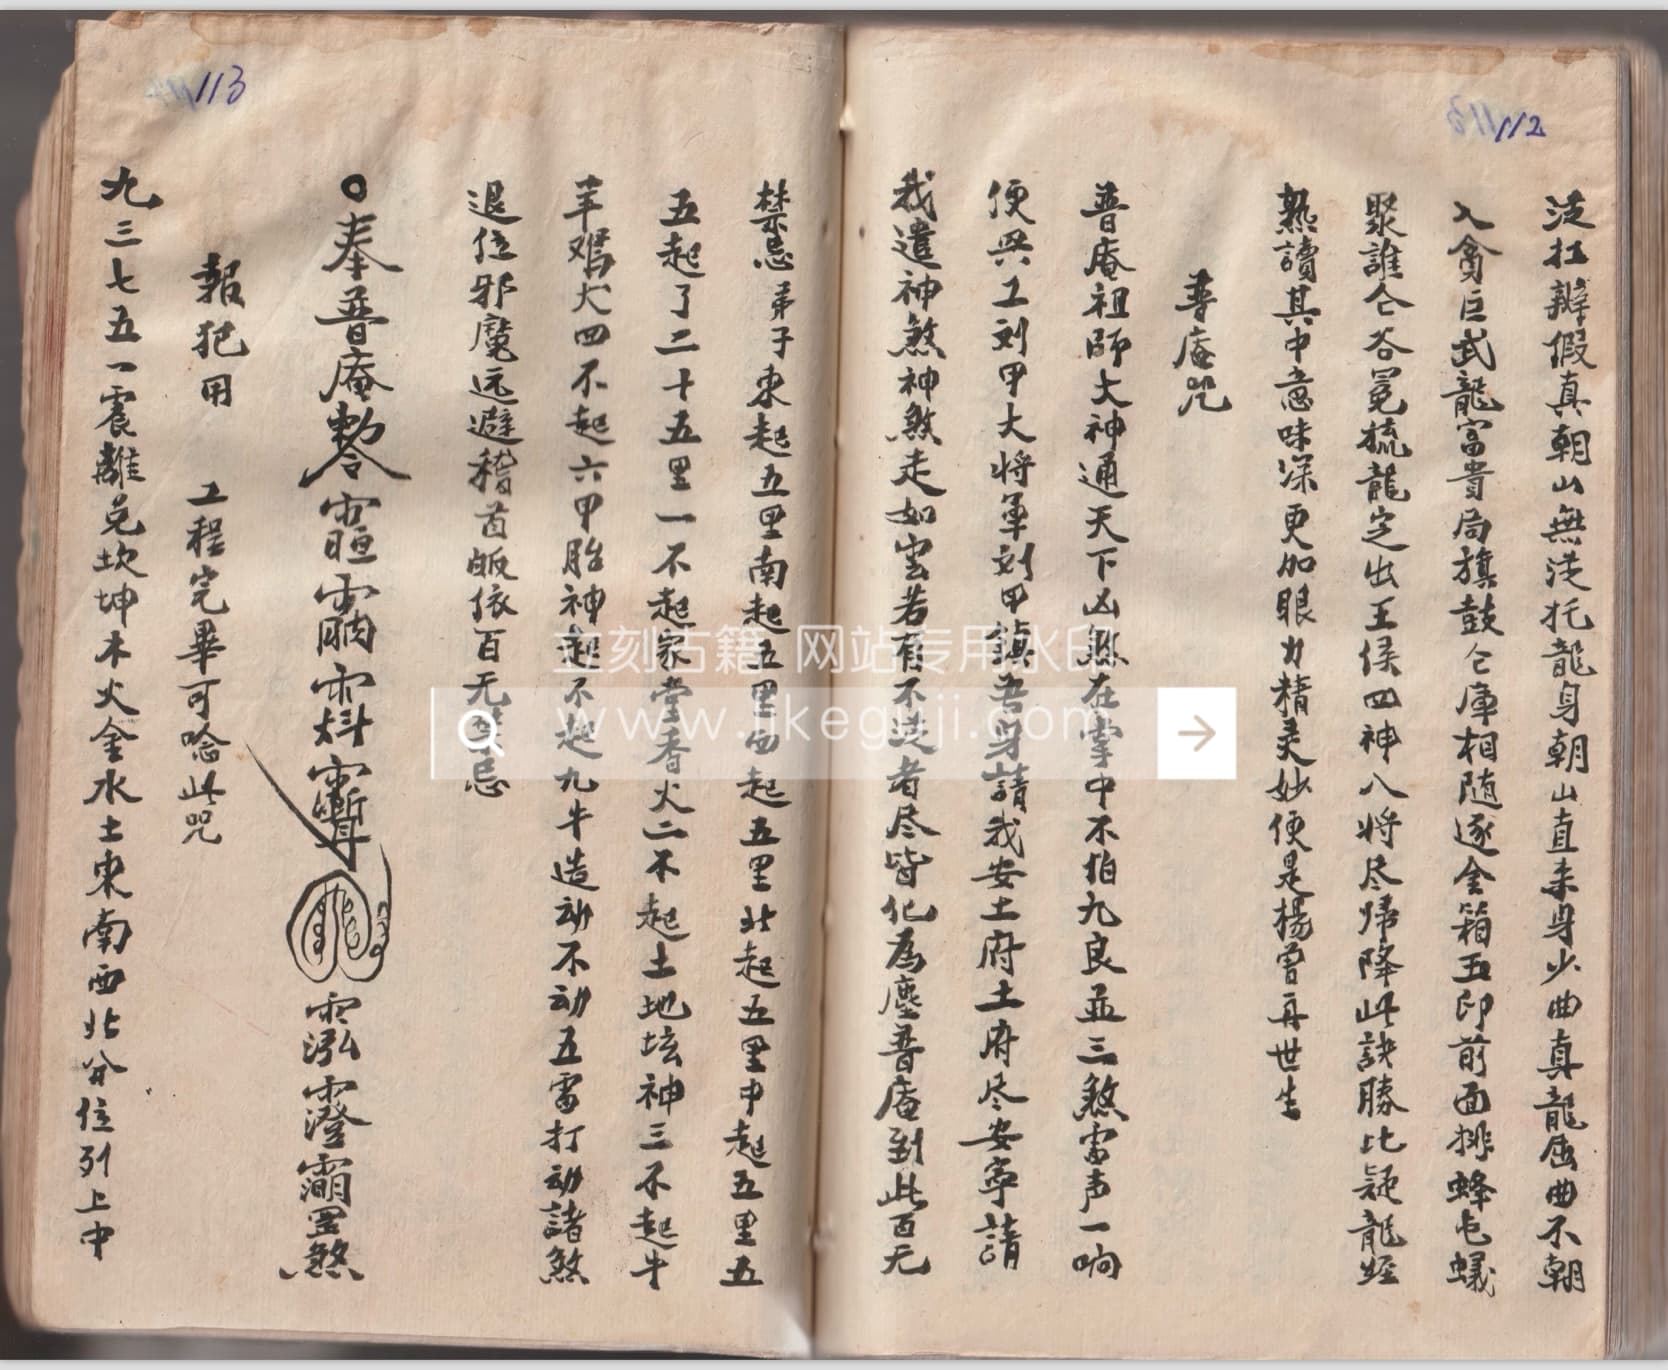 112
泛扛辨假真朝山無泛托龍身朝山直来身少曲真龍屈曲不朝
入貪巨武龍富貴局旗鼓仓庫相随逐金箱玉印前面排蜂屯蟻
聚誰仓谷冕梳龍定出王侯四神八将尽归降此訣勝比疑龍經
熟讀其中意味深更加眼力精灵妙便是楊曾再世生
普庵咒
普庵祖師大神通天下凶煞在掌中不怕九良並三煞雷声一响
便與工刘甲大将軍刘甲鎮吾身請我安土府土府尽安寧請
我遣神煞神煞走如雲若有不走者尽皆化為塵普庵到此百无
113
禁忌弟子東起五里南起五里西起五里北起五里中起五里五
五起了二十五里一不起家堂香火二不起土地坛神三不起牛
羊鸡犬四不起六甲胎神起不起九牛造动不动五雷打动諸煞
退位邪魔远避稽首皈依百无禁忌
奉普庵敕令 煞
報犯用 工程完畢可唸此咒
九三七五一震離兑坎坤木火金水土東南西北分位列上中
立刻古籍 网站专用水印
www.ljkeguji.com